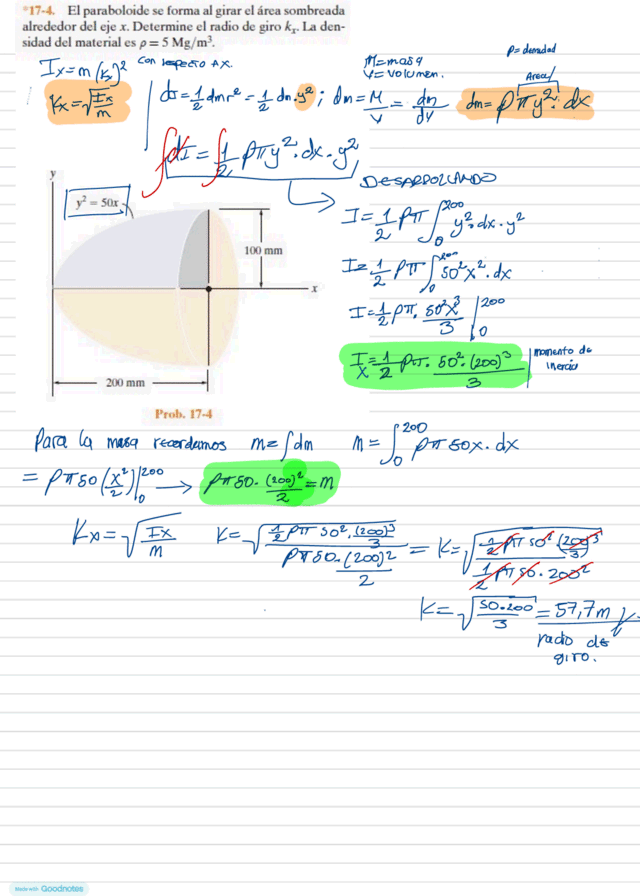 *17-4. El paraboloide se forma al girar el área sombreada
alrededor del eje x. Determine el radio de giro kₓ. La den-
sidad del material es ρ = 5 Mg/m³.
Ix = m (kx)² con respecto a x.
Kx = √(Ix/m)
dI = 1/2 dm r² = 1/2 dm. y² ; dm = M/V = dm/dV
M = masa
V = volumen.
ρ = densidad
Area
dm = ρπy². dx
∫dI = ∫ 1/2 ρπy². dx. y²
DESARROLLANDO
y
y² = 50x
100 mm
x
200 mm
Prob. 17-4
I = 1/2 ρπ ∫₀²⁰⁰ y². dx. y²
I = 1/2 ρπ ∫₀²⁰⁰ 50² x². dx
I = 1/2 ρπ. 50² x³/3 |₀²⁰⁰
Ix = 1/2 ρπ. 50². (200)³/3
momento de
inercia
Para la masa recordamos m = ∫dm m = ∫₀²⁰⁰ ρπ 50x. dx
= ρπ50 (x²/2)|₀²⁰⁰ → ρπ50. (200)²/2 = m
Kx = √(Ix/m) K = √((1/2 ρπ 50². (200)³/3)/(ρπ50. (200)²/2)) = K = √((1/2 ρπ 50². (200³/3))/(1/2 ρπ 50. 200²))
K = √(50.200/3) = 57,7m
radio de
giro.
Made with Goodnotes